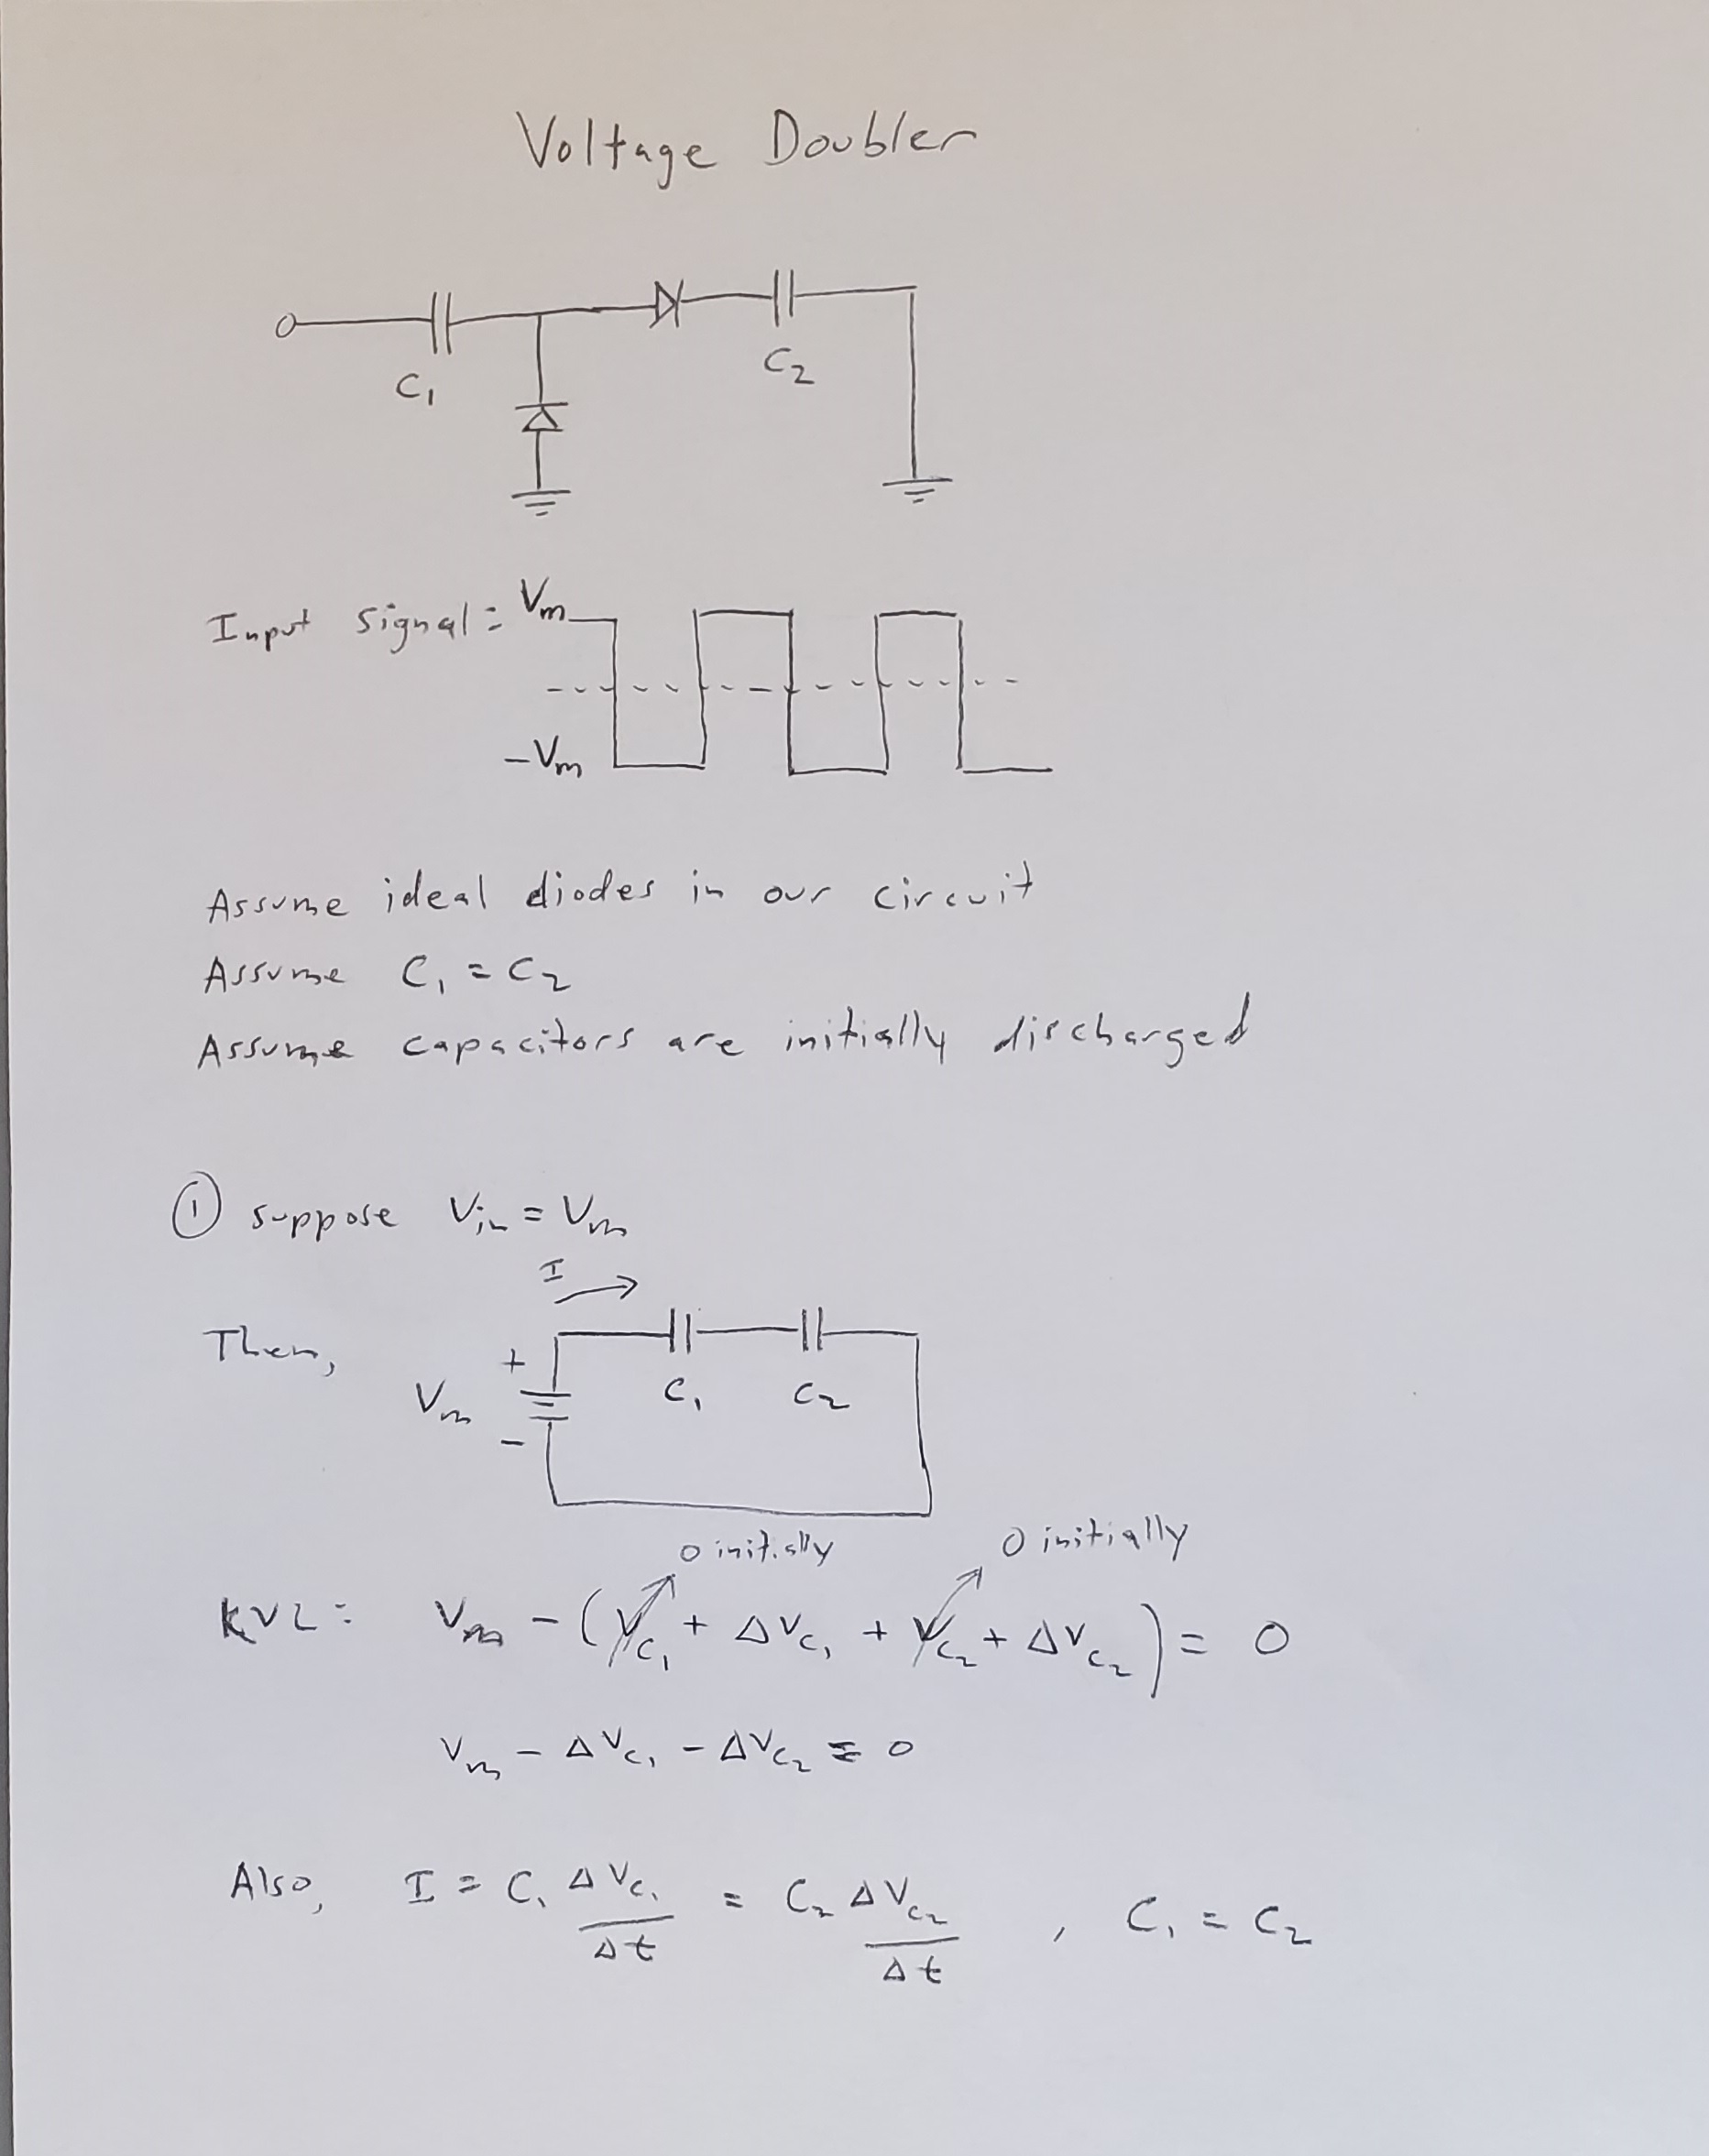 Voltage Doubler
C₁
C₂
Input signal: Vm
-Vm
Assume ideal diodes in our circuit
Assume C₁ = C₂
Assume capacitors are initially discharged
① suppose Vin = Vm
I
Then,
+
Vm
-
C₁ C₂
0 initially 0 initially
KVL: Vm - (Vc₁ + ΔVc₁ + Vc₂ + ΔVc₂) = 0
Vm - ΔVc₁ - ΔVc₂ = 0
Also, I = C₁ ΔVc₁/Δt = C₂ ΔVc₂/Δt , C₁ = C₂